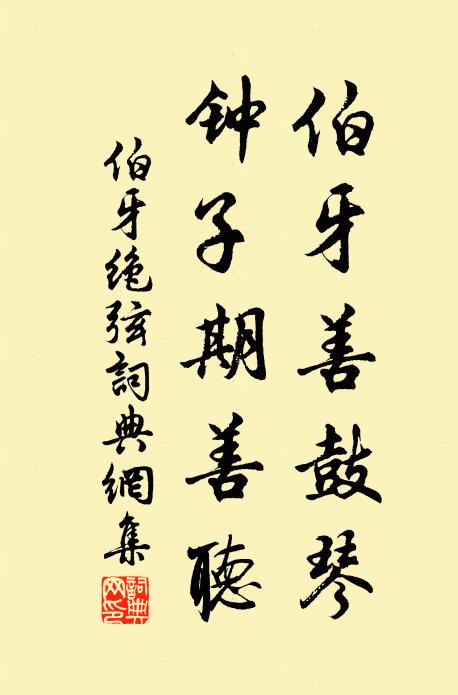 伯牙善鼓琴
钟子期善聽
伯牙绝弦詞典網集
詞典網印